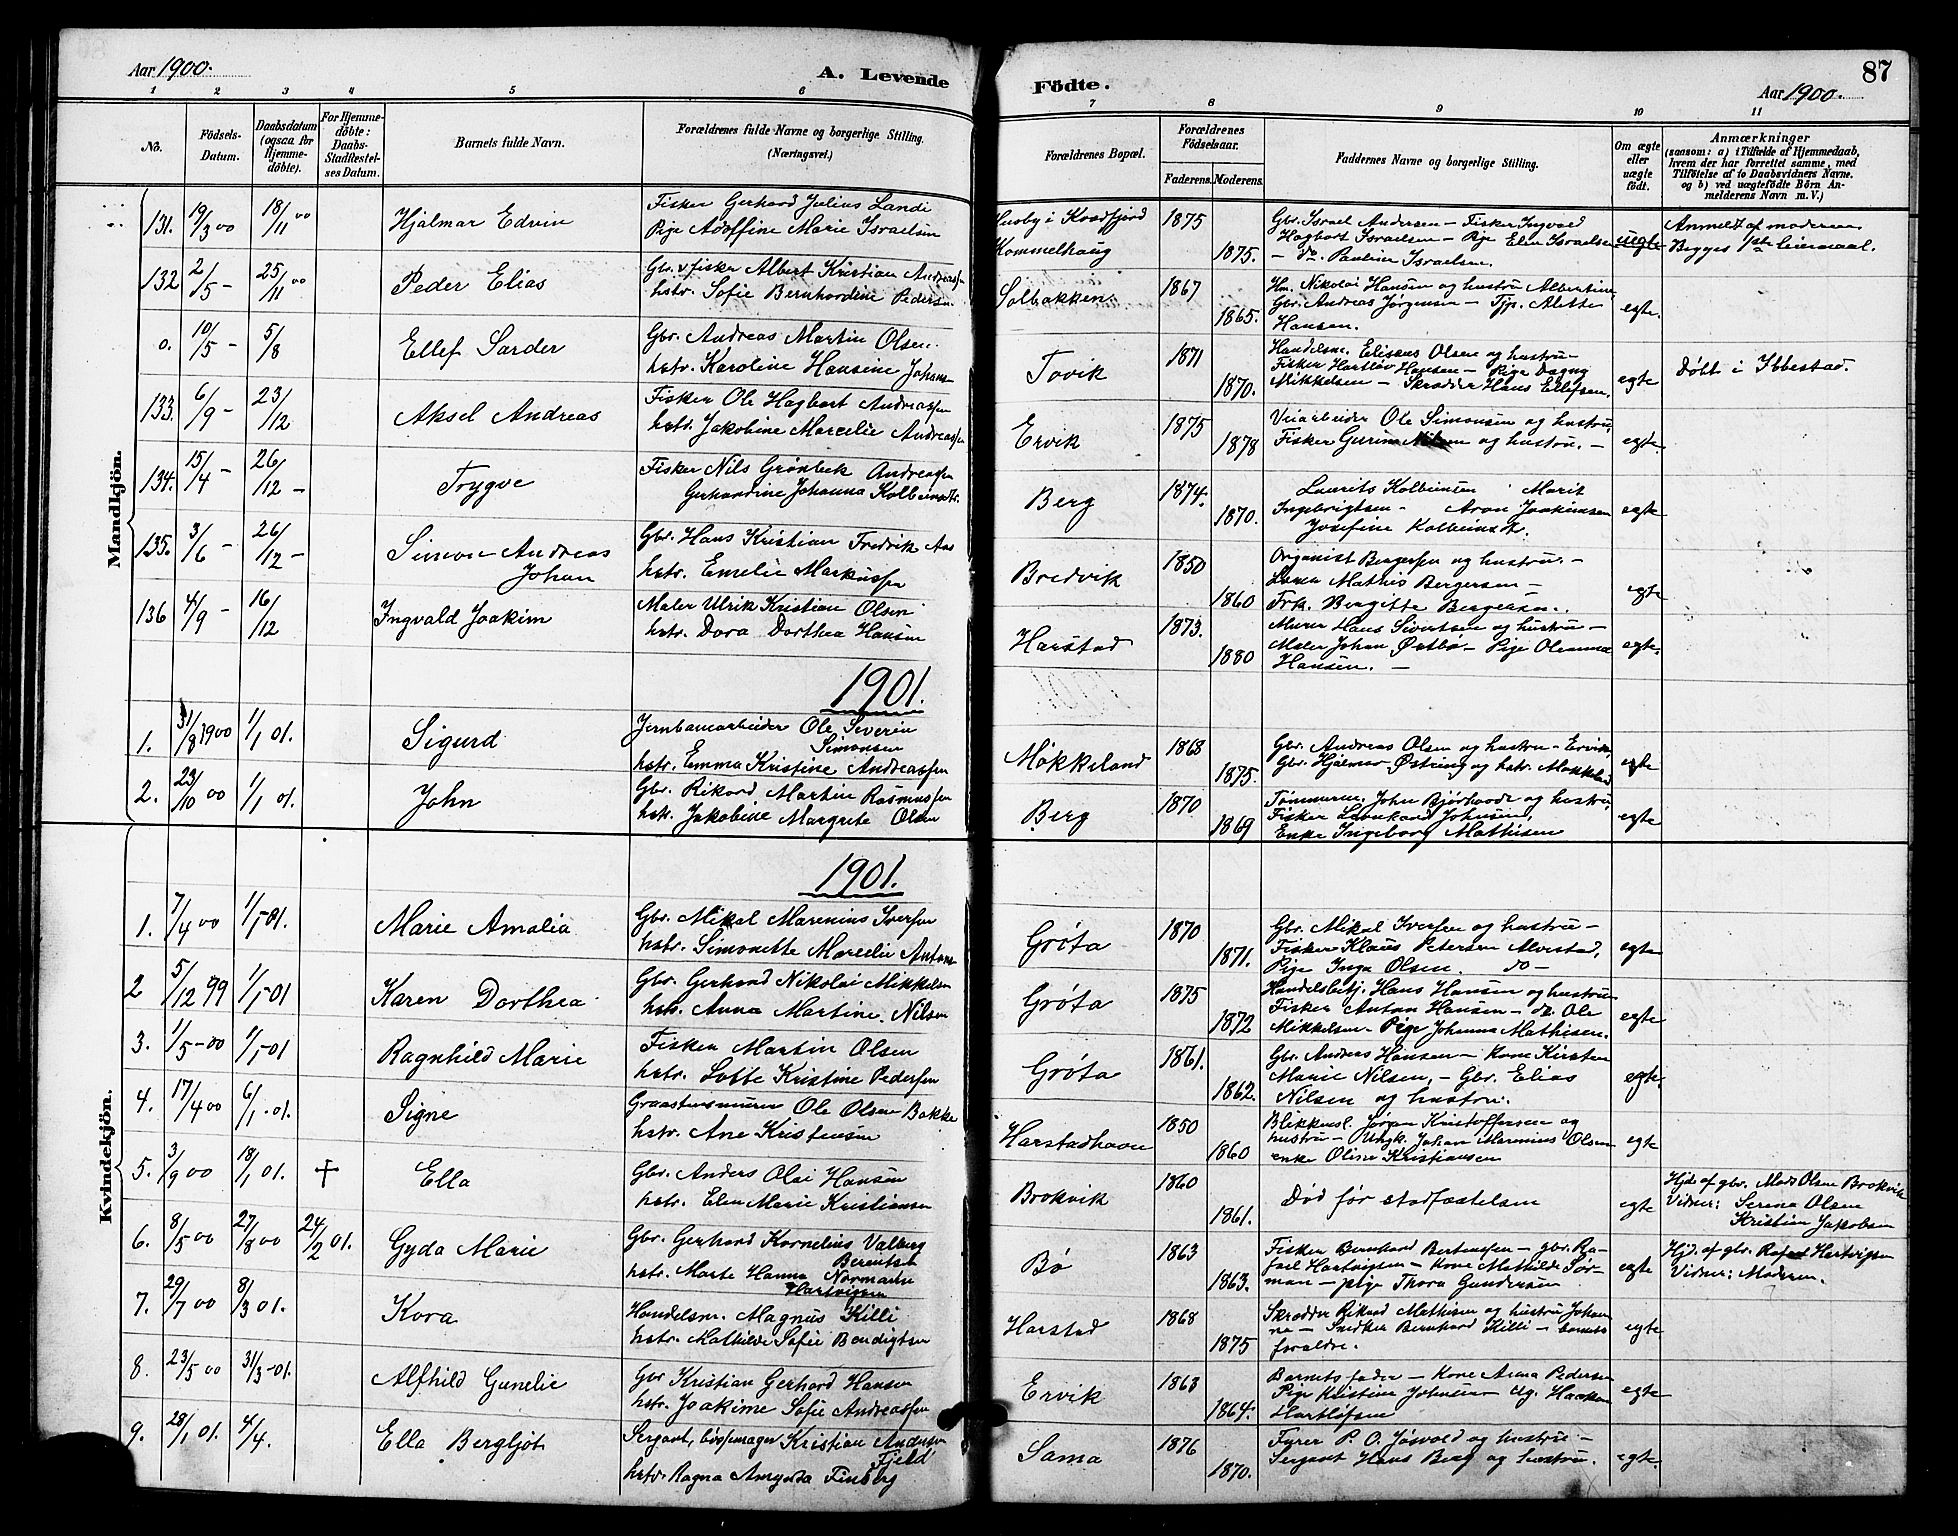 Aar 1900.
A. Levende
Födte.
87
Aar 1900.
1 2 3 4 5 6 7 8 9 10 11
No.
Födsels-
Datum.
Daabsdatum
(ogsaa for
Hjemme-
döbte).
For Hjemme-
döbte:
Daabs-
Stadfæstel-
ses Datum.
Barnets fulde Navn.
Forældrenes fulde Navne og borgerlige Stilling.
(Næringsvei.)
Forældrenes Bopæl.
Forældrenes
Födselsaar.
Faderens. Moderens.
Faddernes Navne og borgerlige Stilling.
Om ægte
eller
uægte
födt.
Anmærkninger
(saasom: a) i Tilfælde af Hjemmedaab,
hvem der har forrettet samme, med
Tilföielse af to Daabsvidners Navne.
og b) ved uægtefödte Börn An-
melderens Navn m. V.)
Mandkjön.
131. 19/3 00 18/11 00 Hjalmar Edvin
Fisker Gerhard Julius Landi
Pige Adolfine Marie Israelsen
Husby i Kvædfjord
Kommelhaug
1875
1875.
Gbr. Israel Andersen – Fisker Ingvald
Hagbart Israelsen – Pige Elen Israelsen
– do. Pauline Israelsen.
uegte
Anmeldt af moderen
Begges 1ste leiermaal.
132 2/5 – 25/11 00 Peder Elias
Gbr. & fisker Albert Kristian Andreassen
hstr. Sofie Bernhardine Pedersen
Solbakken
1867
1865.
Hm. Nikolai Hansen og hustru Albertine,
Gbr. Andreas Jørgensen – Tjp. Alette
Hansen.
egte.
0. 10/5 – 5/8 Ellef Sarder
Gbr. Andreas Martin Olsen.
hstr. Karoline Hansine Johans
Tovik
1871
1870.
Handelsm. Eliseus Olsen og hustru –
Fisker Hartløv Hansen – Pige Dagny
Mikkelsen – Skrædder Hans Ellefsen.
egte
Døbt i Ibbestad.
133. 6/9 – 23/12 Aksel Andreas
Fisker Ole Hagbart Andreassen
hstr. Jakobine Marcelie Andreassen
Ervik
1875
1878
Veiarbeider Ole Simonsen og hustru,
Fisker Nilsen og hustru. –
egte.
134. 15/4 – 26/12 – Trygve
Fisker Nils Grønbek Andreassen
Gerhardine Johanna Kolbeinsdtr.
Berg
1874.
1870.
Laurits Kolbeinsen Marit
Ingebrigtsen – Aron Joakimsen
Josefine Kolbeinsdt.
egte
135. 3/6 – 26/12 – Simon Andreas
Johan
Gbr. Hans Kristian Fredrik Aas
hstr. Emelie Markussen
Bredvik
1850
1860
Organist Bergersen og hustru. –
Mathis Bergersen –
Frk. Bergitte Bergersen.
egte
136 4/9 – 16/12 Ingvald Joakim
Maler Ulrik Kristian Olsen
hstr. Dora Dorthea Hansen
Harstad
1873.
1880
Murer Hans Sivertsen og hustru –
Maler Johan Østbø – Pige Oleanna
Hansen. –
egte.
1901.
1. 31/8 1900 1/1 01. Sigurd
Jernbanearbeider Ole Severin
Simonsen
hstr. Emma Kristine Andreassen
Møkkeland
1868
1875.
Gbr. Andreas Olsen og hustru – Ervik,
Gbr. Hjalmar Østreng og hstr. Møkkeland
egte
2. 23/10 00 1/1 01. John
Gbr. Rikard Martin Rasmussen
hstr. Jakobine Margrete Olsen
Berg
1870
1869
Tømmerm. John Bjørhovde og hustru,
Fisker Leonhard Johnsen,
Enke Ingeborg Mathisen
egte
Kvindekjön.
1901.
1. 7/4 00 1/1–01. Marie Amalia
Gbr. Mikal Marenius Iversen
hstr. Simonette Marcelie Antons
Grøta
1870
1871.
Gbr. Mikal Iversen og hustru –
Fisker Klaus Petersen Alvestad,
Pige Inga Olsen. do –
egte
2 5/12 99 1/1–01 Karen Dorthea
Gbr. Gerhard Nikolai Mikkelsen
hstr. Anna Martine Nilsen
Grøta
1875
1872
Handelsbetj. Hans Hansen og hustru
Fisker Antan Hansen – do. Ole
Mikkelsen – Pige Johanna Mathisen.
egte
3. 1/5–00 1/1–01 Ragnhild Marie
Fisker Martin Olsen
hstr. Lotte Kristine Pedersen
Grøta
1861.
1862.
Gbr. Anders Hansen – Kone Kirsten
Marie Nilsen, – Gbr. Elias
Nilsen og hustru.
egte
4. 17/4 00 6/1–01. Signe
Graastensmurer Ole Olsen Bakke
hstr. Ane Kristensen
Harstadhavn
1850
1860
Blikkensl. Jørgen Kristoffersen og
hustru – Uhgk. Johan Marenius Olsen
enke Oline Kristiansen
egte
5. 3/9 00 18/1 01. + Ella
Gbr. Anders Olai Hansen
hstr. Elen Marie Kristiansen
Brokvik
1860
1861.
Død før stadfæstelsen
egte
Hjd. af gbr. Mads Olsen Brokvik
Vidner: Serena Olsen
Kristian Jakobsen
6. 8/5 00 27/8 00 24/2 01. Gyda Marie
Gbr. Gerhard Kornelius Valberg
Berentsen
hstr. Marte Hanna Normanda
Hartvigsen
Bø
1863
1863.
Fisker Bernhard Berntsen – gbr. Ra-
fael Hartvigsen – Kone Mathilde Nor-
man – pige Thora Gundersen
egte
Hjd. af gbr. Rafael Hartvigsen
Vidner: Moderen.
7. 29/7 00 8/3 01. Kora
Handelsm. Magnus Killi
hstr. Mathilde Sofie Bendigtsen
Harstad
1868
1875
Skrædder Rikard Mathisen og hustru Johan-
na – Snedker Bernhard Killi – barnets
forældre.
egte
8. 23/5 00 31/3–01. Alfhild Gunelie
Gbr Kristian Gerhard Hansen
hstr. Joakime Sofie Andreassen
Ervik
1863
1864.
Barnets fader – Kone Anna Pedersen
Pige Kristine Johnsen – Ug. Haakon
Hartløfsen
egte
9. 28/1 01. 4/4. Ella Bergljot
Sergant, bøssemager Kristian Andersen
Fjeld
hstr. Ragna Amanda Finberg
Sama
1876
1870.
Fyrer P. O. Jøsvold og hustru –
Sergant Hans Berg og hustru.
egte.